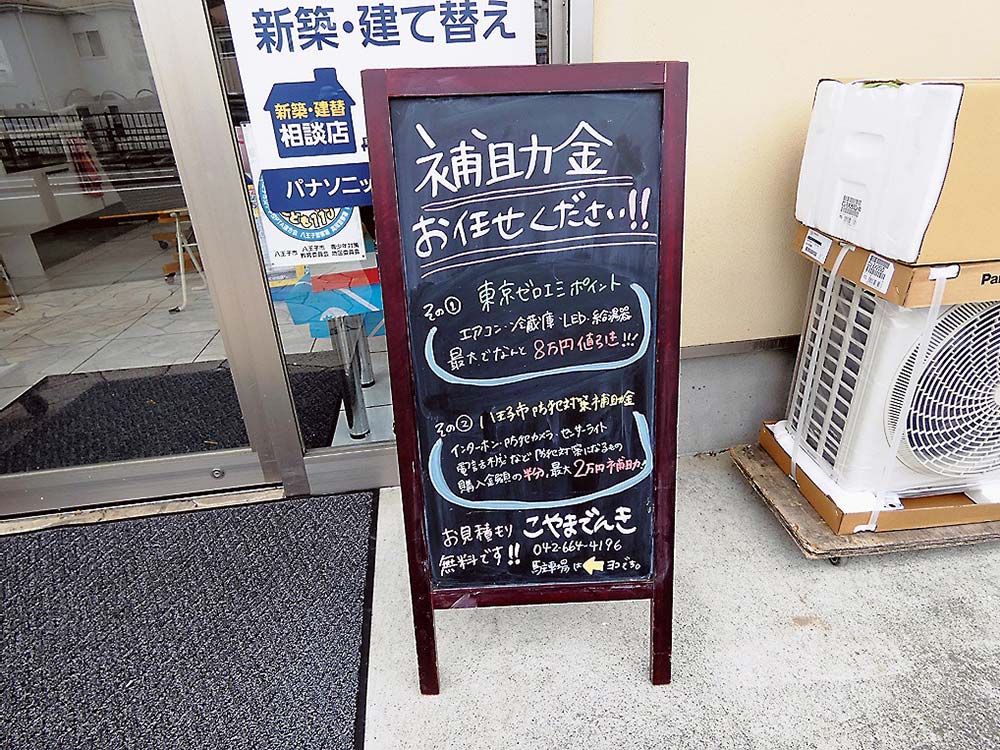 新築・建て替え
新築・建替
相談店
パナソニッ
八王子市
八王子市
教育委員会
青少年対策
地区委員会
補助金
お任せください!!
その① 東京ゼロエミポイント
エアコン・冷蔵庫・LED・給湯器
最大でなんと 8万円値引き!!!
その② 八王子市防犯対策補助金
インターホン・防犯カメラ・センサーライト
電話機など防犯対策になるもの
購入金額の半分、最大2万円補助!
お見積もり
無料です!!
こやまでんき
042-664-4196
駐車場は ヨコです。
Pan